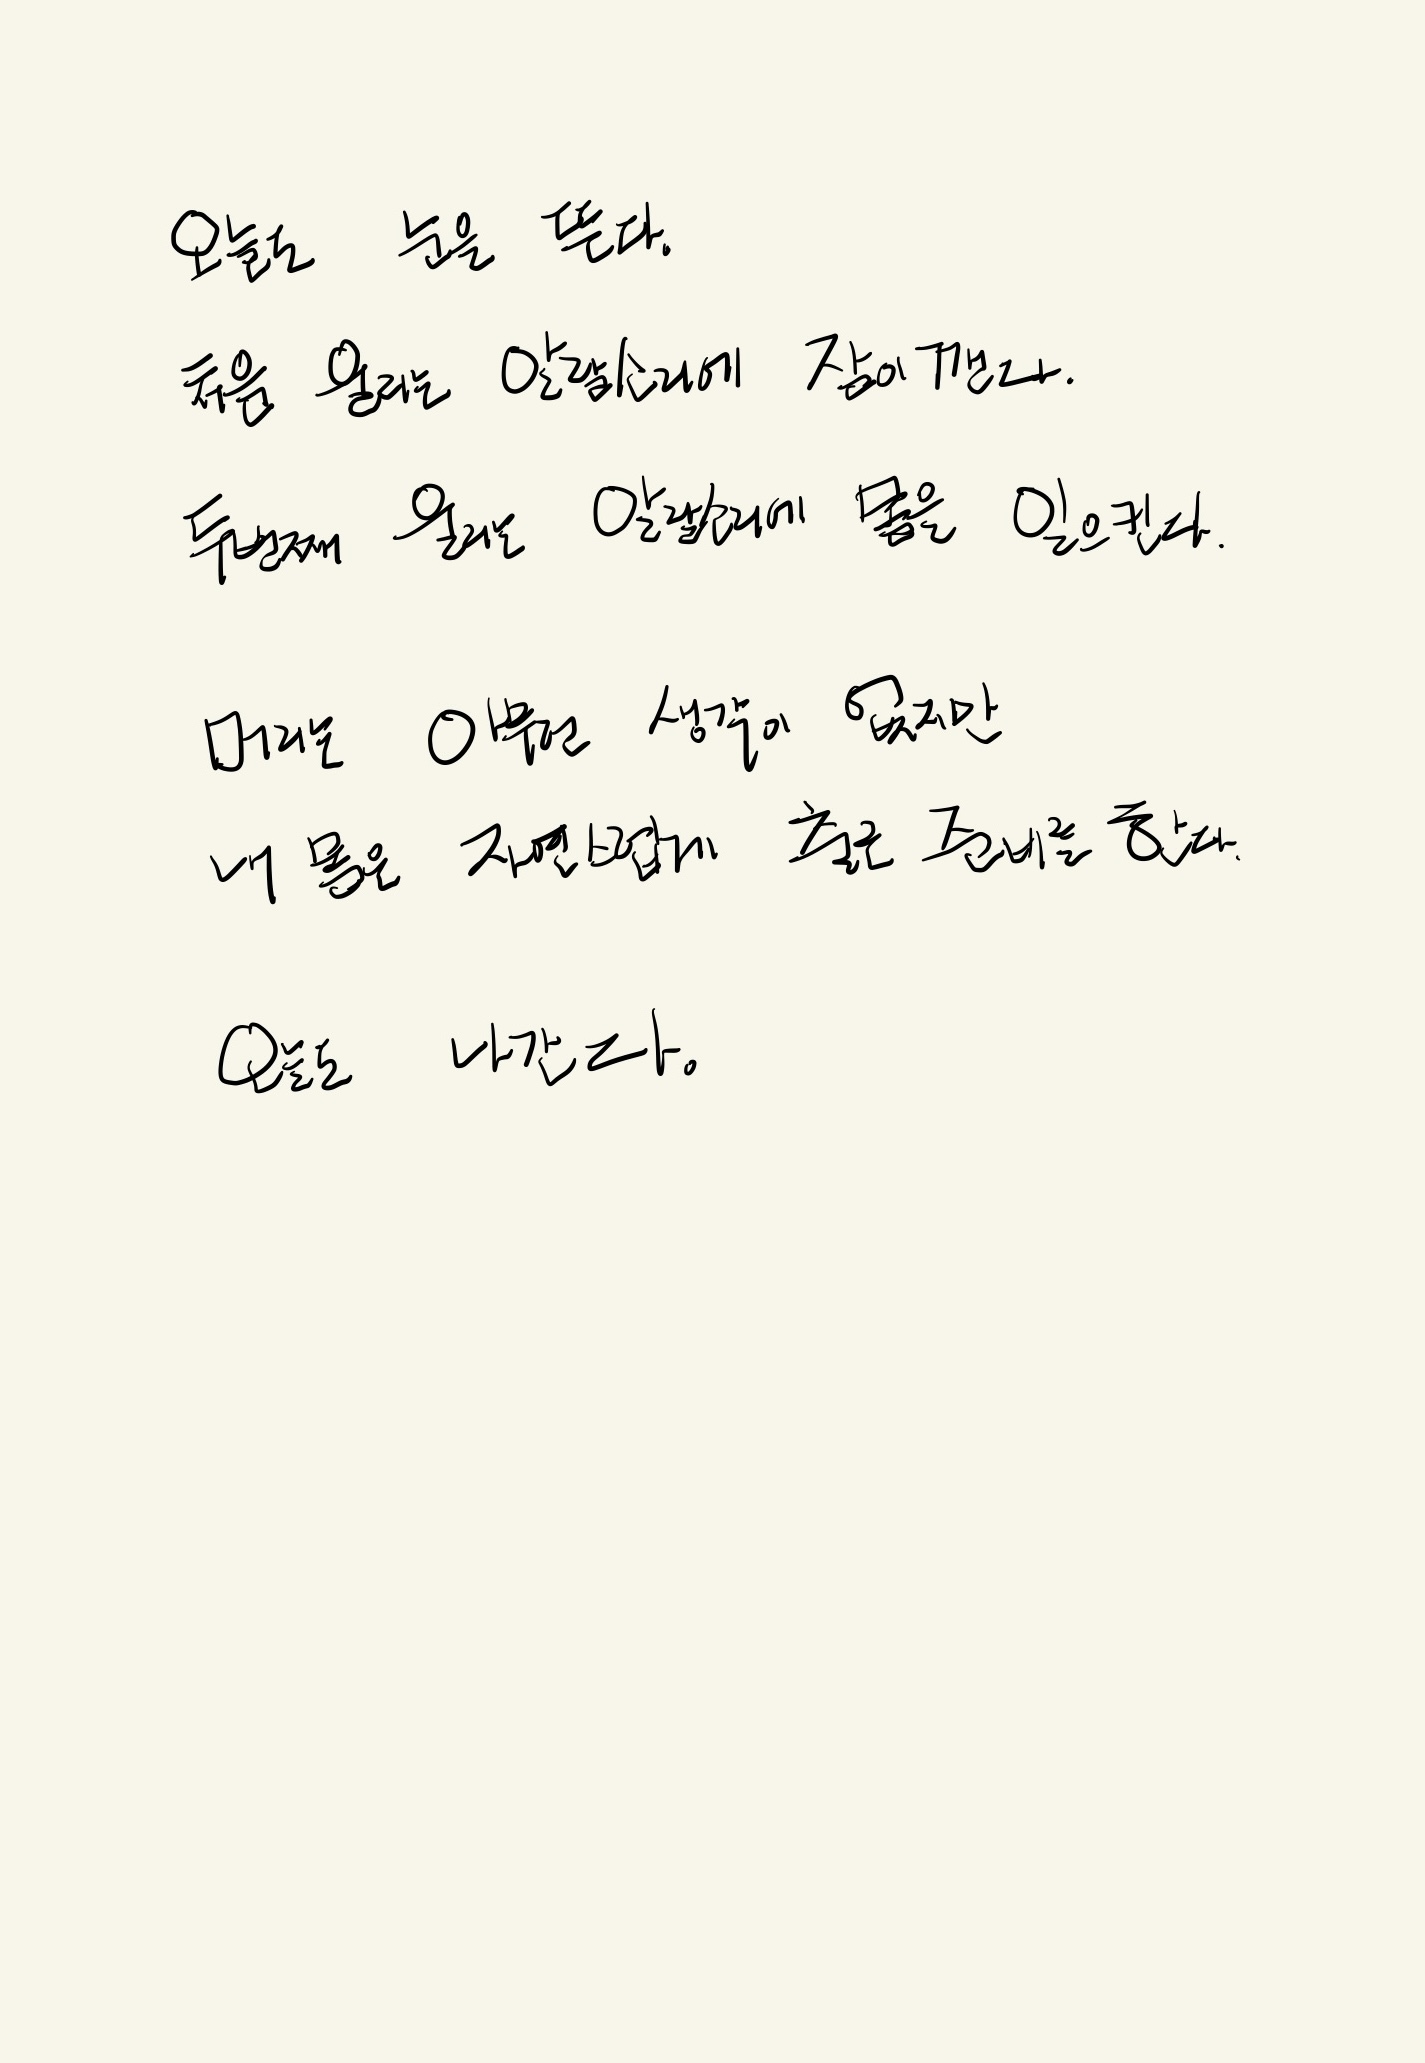 오늘도 눈을 뜬다.
처음 울리는 알람소리에 잠이 깬다.
두번째 울리는 알람소리에 몸을 일으킨다.
머리는 아무런 생각이 없지만
내 몸은 자연스럽게 출근 준비를 한다.
오늘도 나간다.